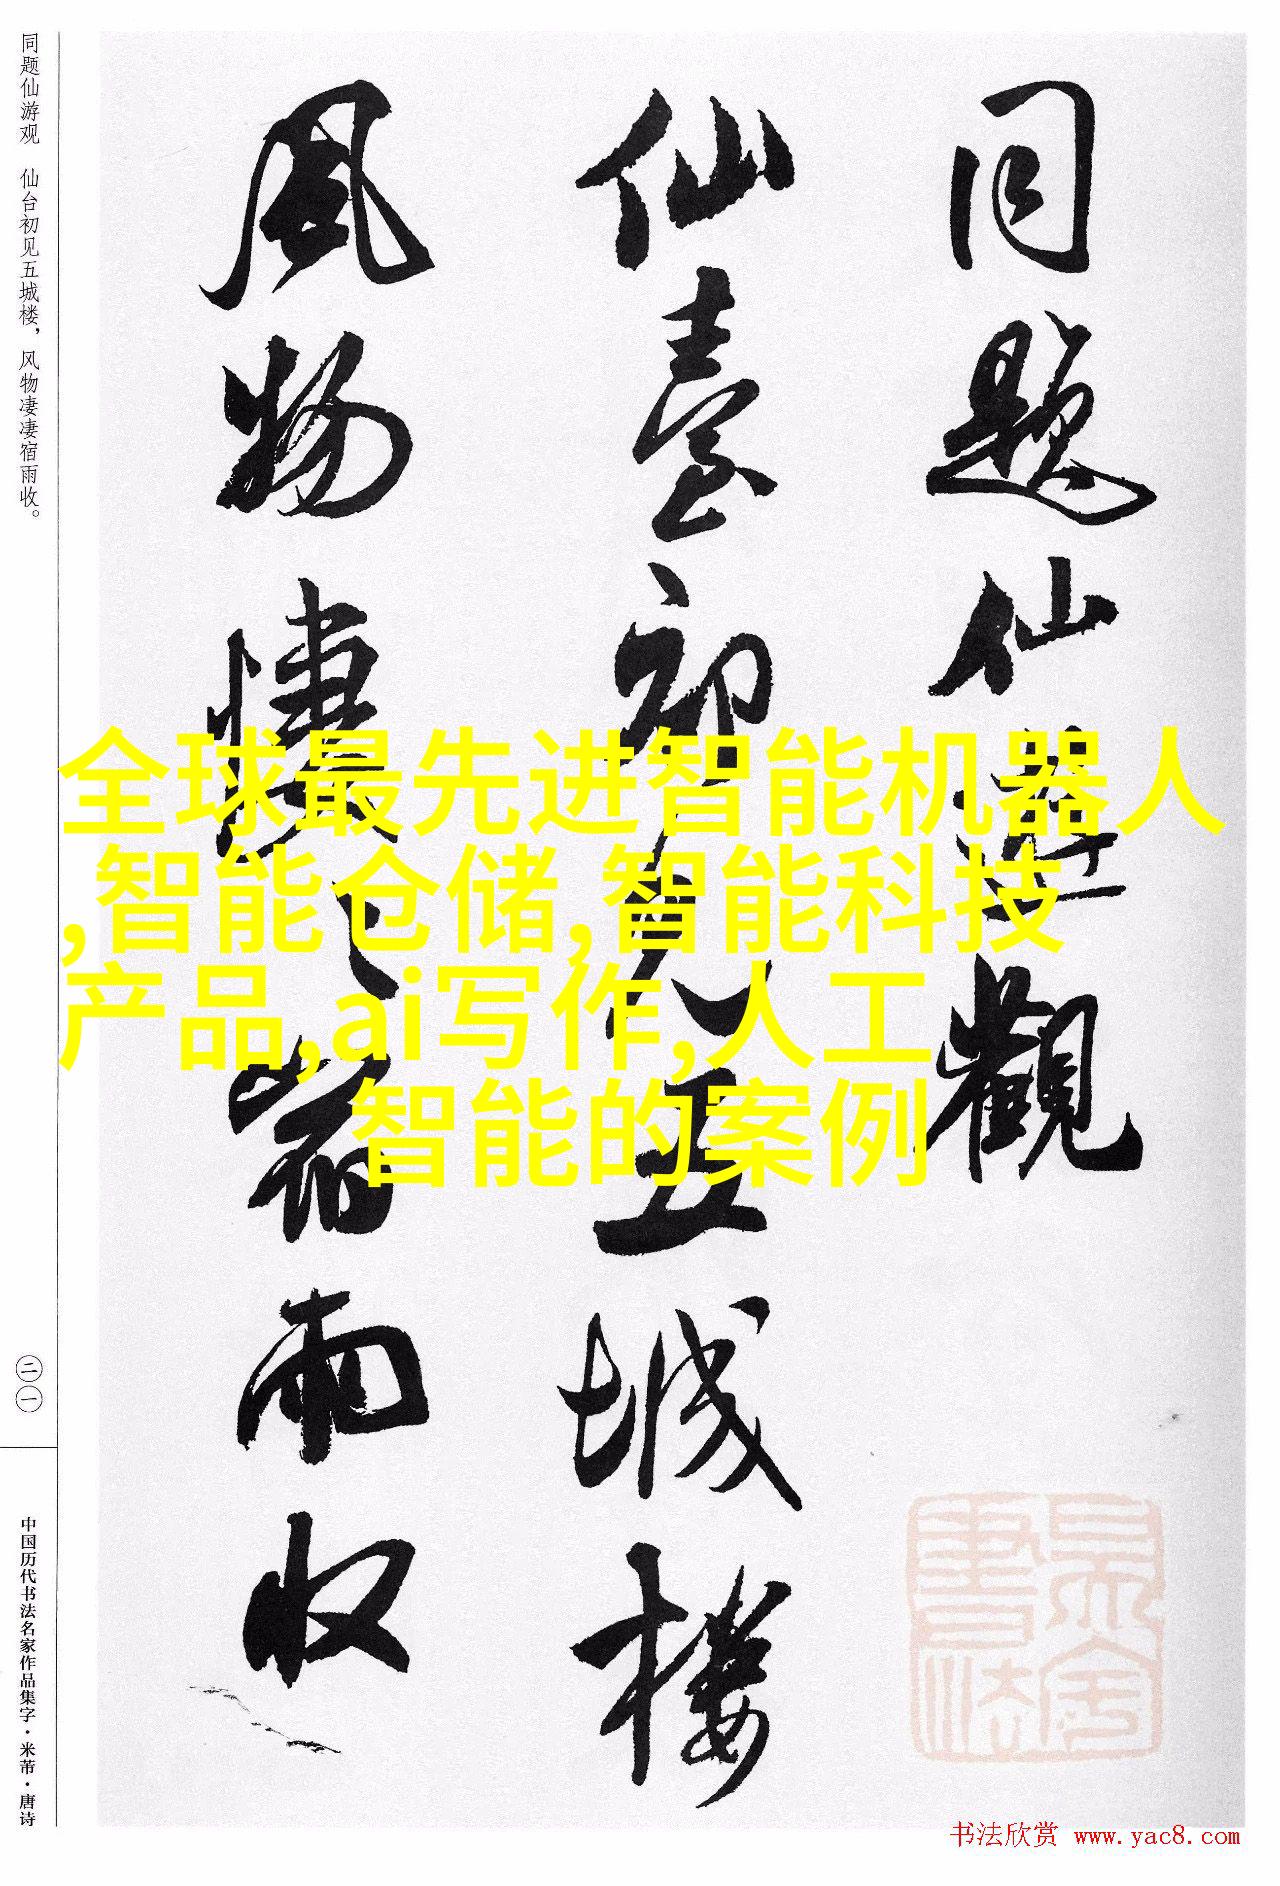 同题仙游观
仙臺初见五城楼
風物悽〻宿雨收
同题仙游观　仙台初见五城楼，风物凄凄宿雨收。
二一
中国历代书法名家作品集字·米芾·唐诗
全球最先进智能机器人
,智能仓储,智能科技
产品,ai写作,人工
智能的案例
书法欣赏 www.yac8.com